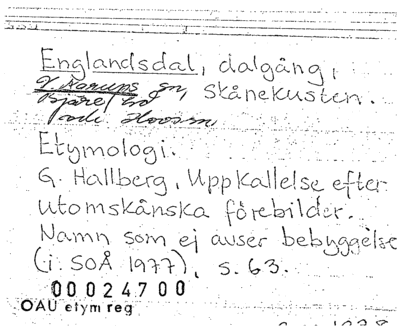 Englandsdal, dalgång,
V Karups sn, Skånekusten.
Bjäre hd
Etymologi.
G. Hallberg, Uppkallelse efter
utomskånska förebilder.
Namn som ej avser bebyggelse
(i SOÅ 1977), s. 63.
00024700
OAU etym reg